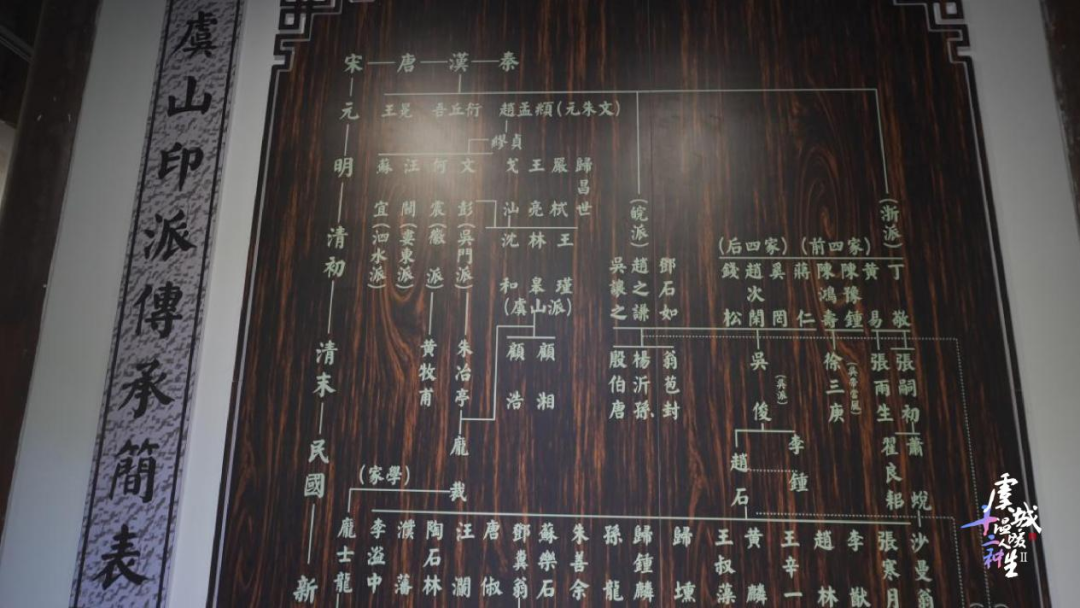 虞山印派傳承簡表
宋—唐—漢—秦
元
明
清初
清末
民國
新
王冕
吾丘衍
趙孟頫(元朱文)
繆貞
蘇宣(泗水派)
汪關(婁東派)
何震(徽派)
文彭(吳門派)
戈汕
王亮
嚴栻
歸昌世
沈和
林皋
王瑾
(虞山派)
顧浩
顧湘
黃牧甫
朱冶亭
龐裁
(家學)
(皖派)
吳讓之
趙之謙
鄧石如
(浙派)
(后四家)
(前四家)
錢松
趙次閑
奚罔
蔣仁
陳鴻壽
陳豫鍾
黃易
丁敬
殷伯唐
楊沂孫
翁苞封
吳俊
(吳派)
徐三庚
張雨生
張嗣初
趙石
李鍾
翟良耜
蕭蜕
龐士龍
李溢中
濮藩
陶石林
汪瀾
唐俶
鄧糞翁
蘇樂石
朱善余
孫龍
歸鍾麟
歸壎
王叔藻
黃麟
王辛一
趙林
李猷
張寒月
沙曼翁
虞城
十二人生
温暖
种
II